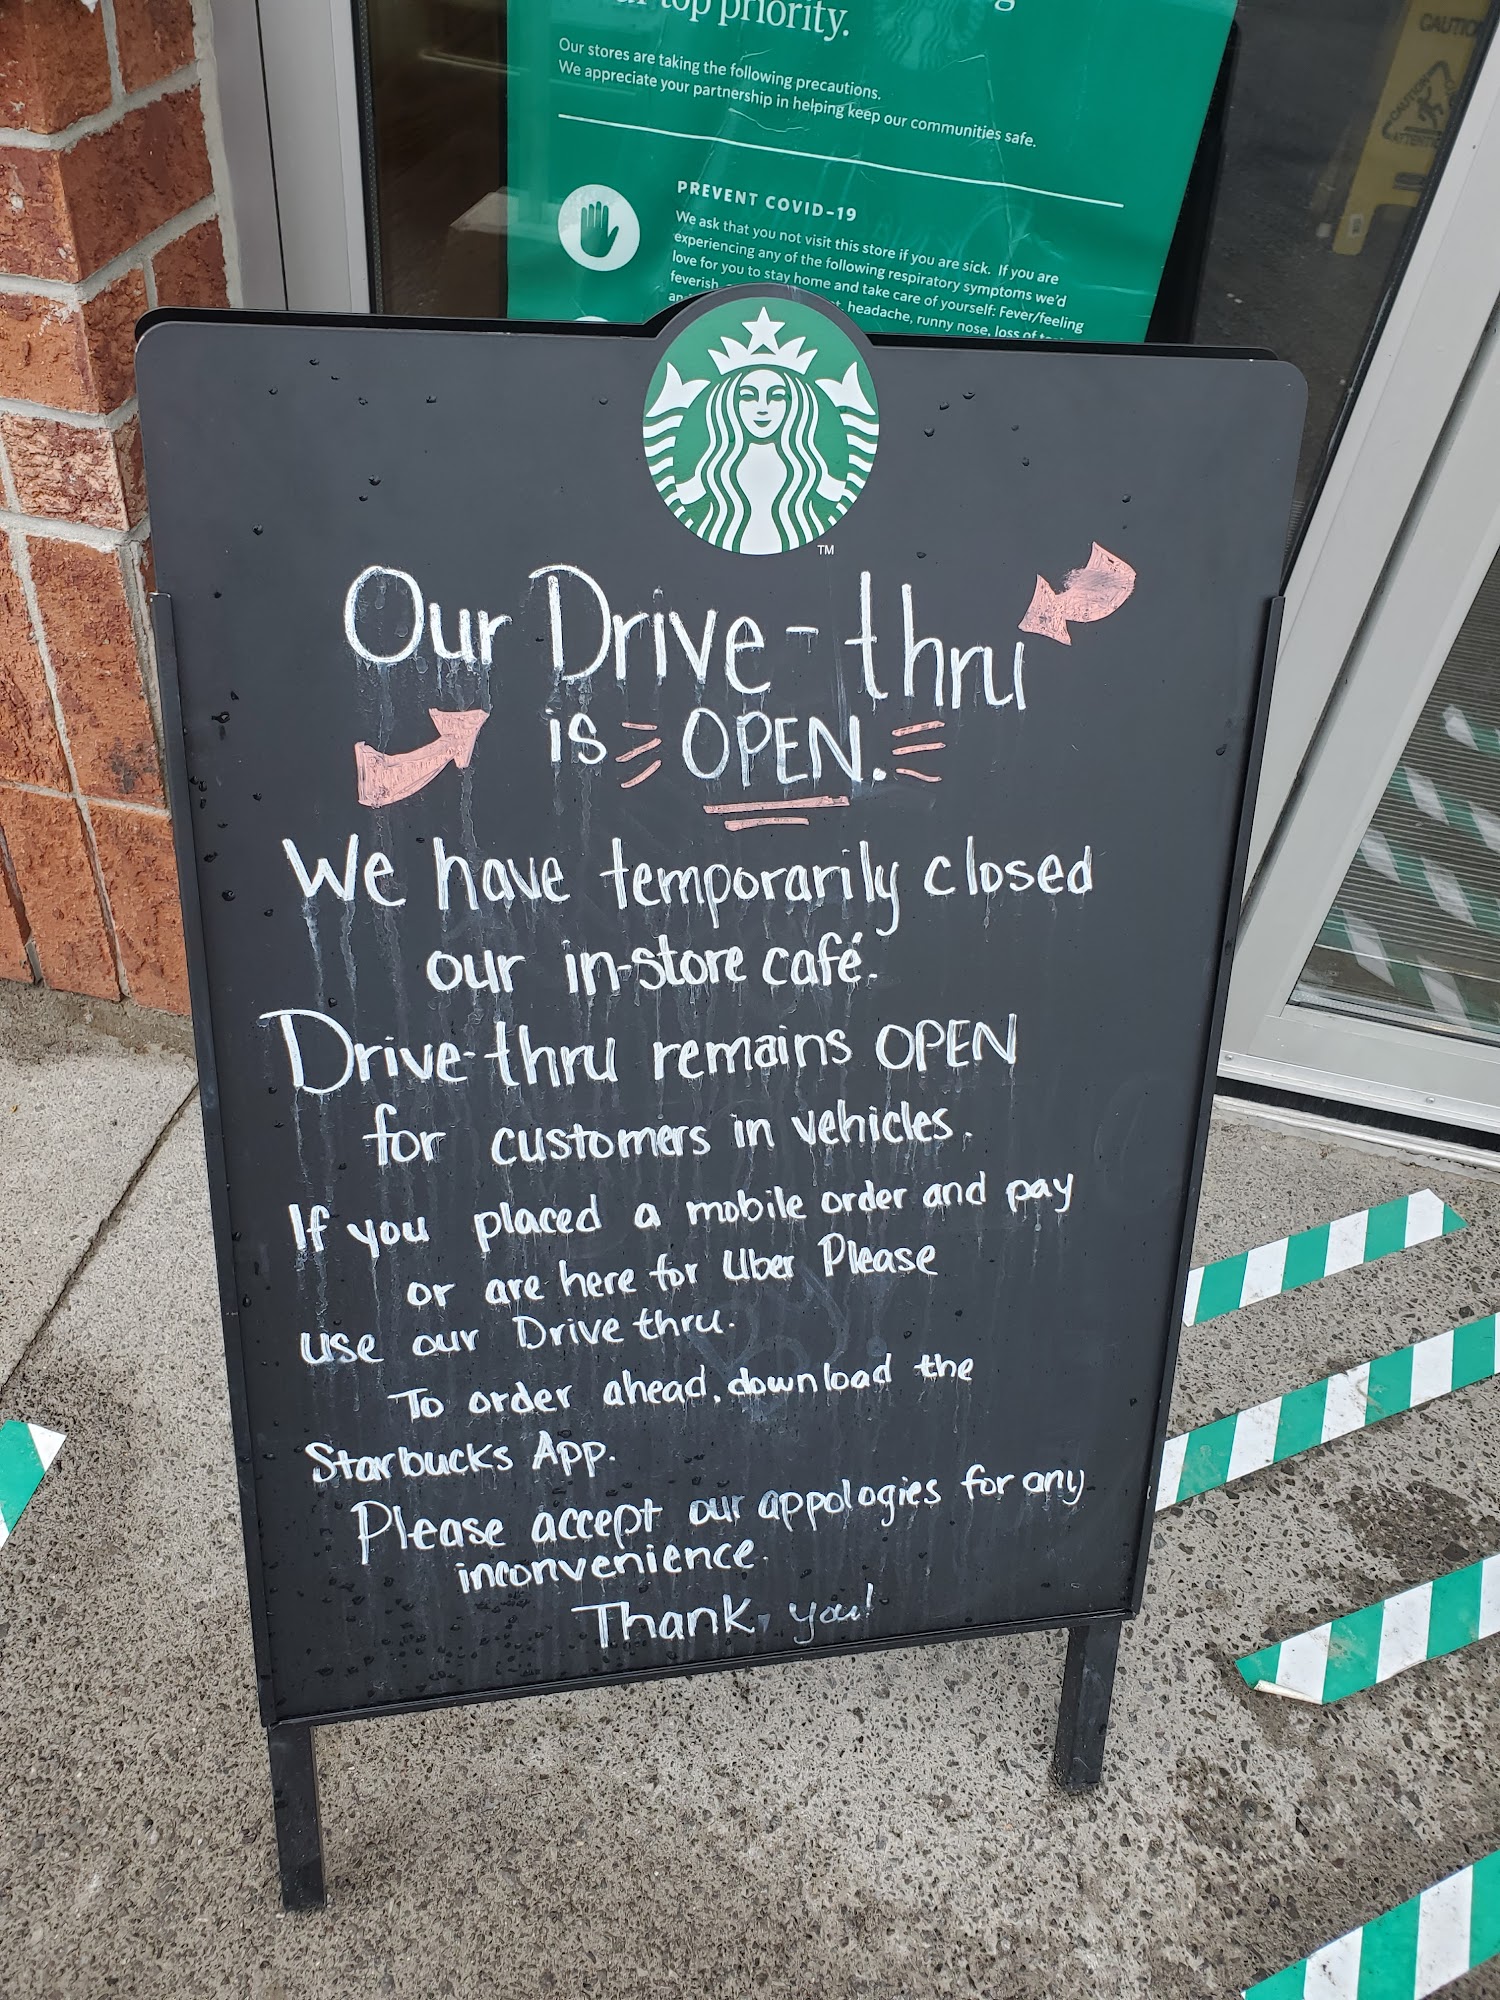 top priority.
Our stores are taking the following precautions.
We appreciate your partnership in helping keep our communities safe.
PREVENT COVID-19
We ask that you not visit this store if you are sick. If you are
experiencing any of the following respiratory symptoms we'd
love for you to stay home and take care of yourself: Fever/feeling
feverish, headache, runny nose, loss of
CAUTION
CAUTION
TM
Our Drive-thru
is OPEN.
We have temporarily closed
our in-store café.
Drive-thru remains OPEN
for customers in vehicles.
If you placed a mobile order and pay
or are here for Uber Please
use our Drive thru.
To order ahead, download the
Starbucks App.
Please accept our appologies for any
inconvenience.
Thank you!